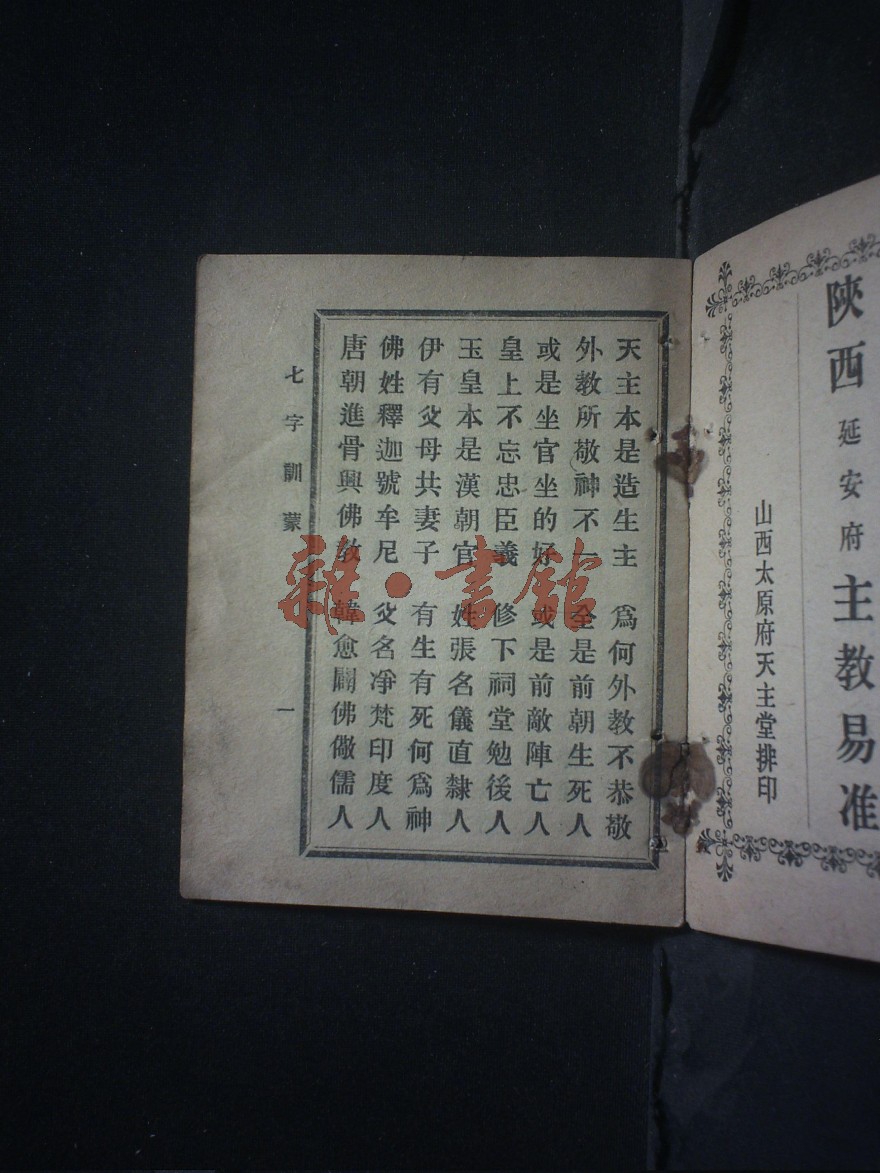 陝西延安府主教易准
山西太原府天主堂排印
天主本是造生主 爲何外教不恭敬
外教所敬神不一 全是前朝生死人
或是坐官坐的好 或是前敵陣亡人
皇上不忘忠臣義 修下祠堂勉後人
玉皇本是漢朝官 姓張名儀直隸人
伊有父母共妻子 有生有死何爲神
佛姓釋迦號牟尼 父名凈梵印度人
唐朝進骨興佛教 韓愈闢佛儆儒人
七字訓蒙 一
雜·書館